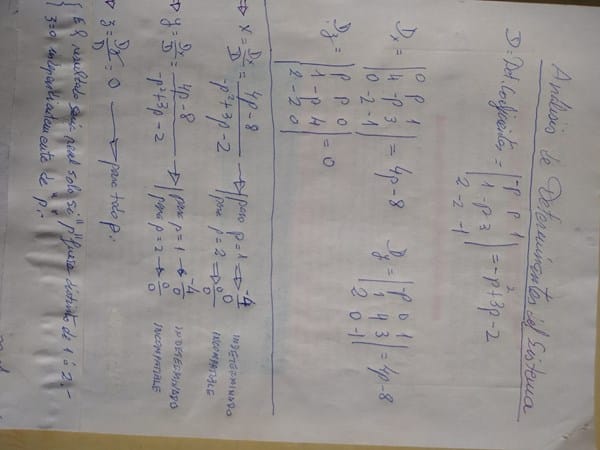 Análisis de Determinantes del Sistema
D: Det. Coeficientes = |-p p 1
1 -p 3
2 -2 -1| = -p²+3p-2
Dx = |0 p 1
4 -p 3
0 -2 -1| = 4p-8
Dy = |-p 0 1
1 4 3
2 0 -1| = 4p-8
Dz = |p p 0
1 -p 4
2 -2 0| = 0
⇒ x = Dx/D = 4p-8/-p²+3p-2 → para p=1 ⇒ -4/0 INDETERMINADO
para p=2 ⇒ 0/0 INCOMPATIBLE
⇒ y = Dx/D = 4p-8/-p²+3p-2 → para p=1 → -4/0 INDETERMINADO
para p=2 → 0/0 INCOMPATIBLE
⇒ z = Dz/D = 0 → para todo p.
{ El resultado será real solo si "p" fuese distinto de 1 ó 2.-
z=0 independientemente de "p".